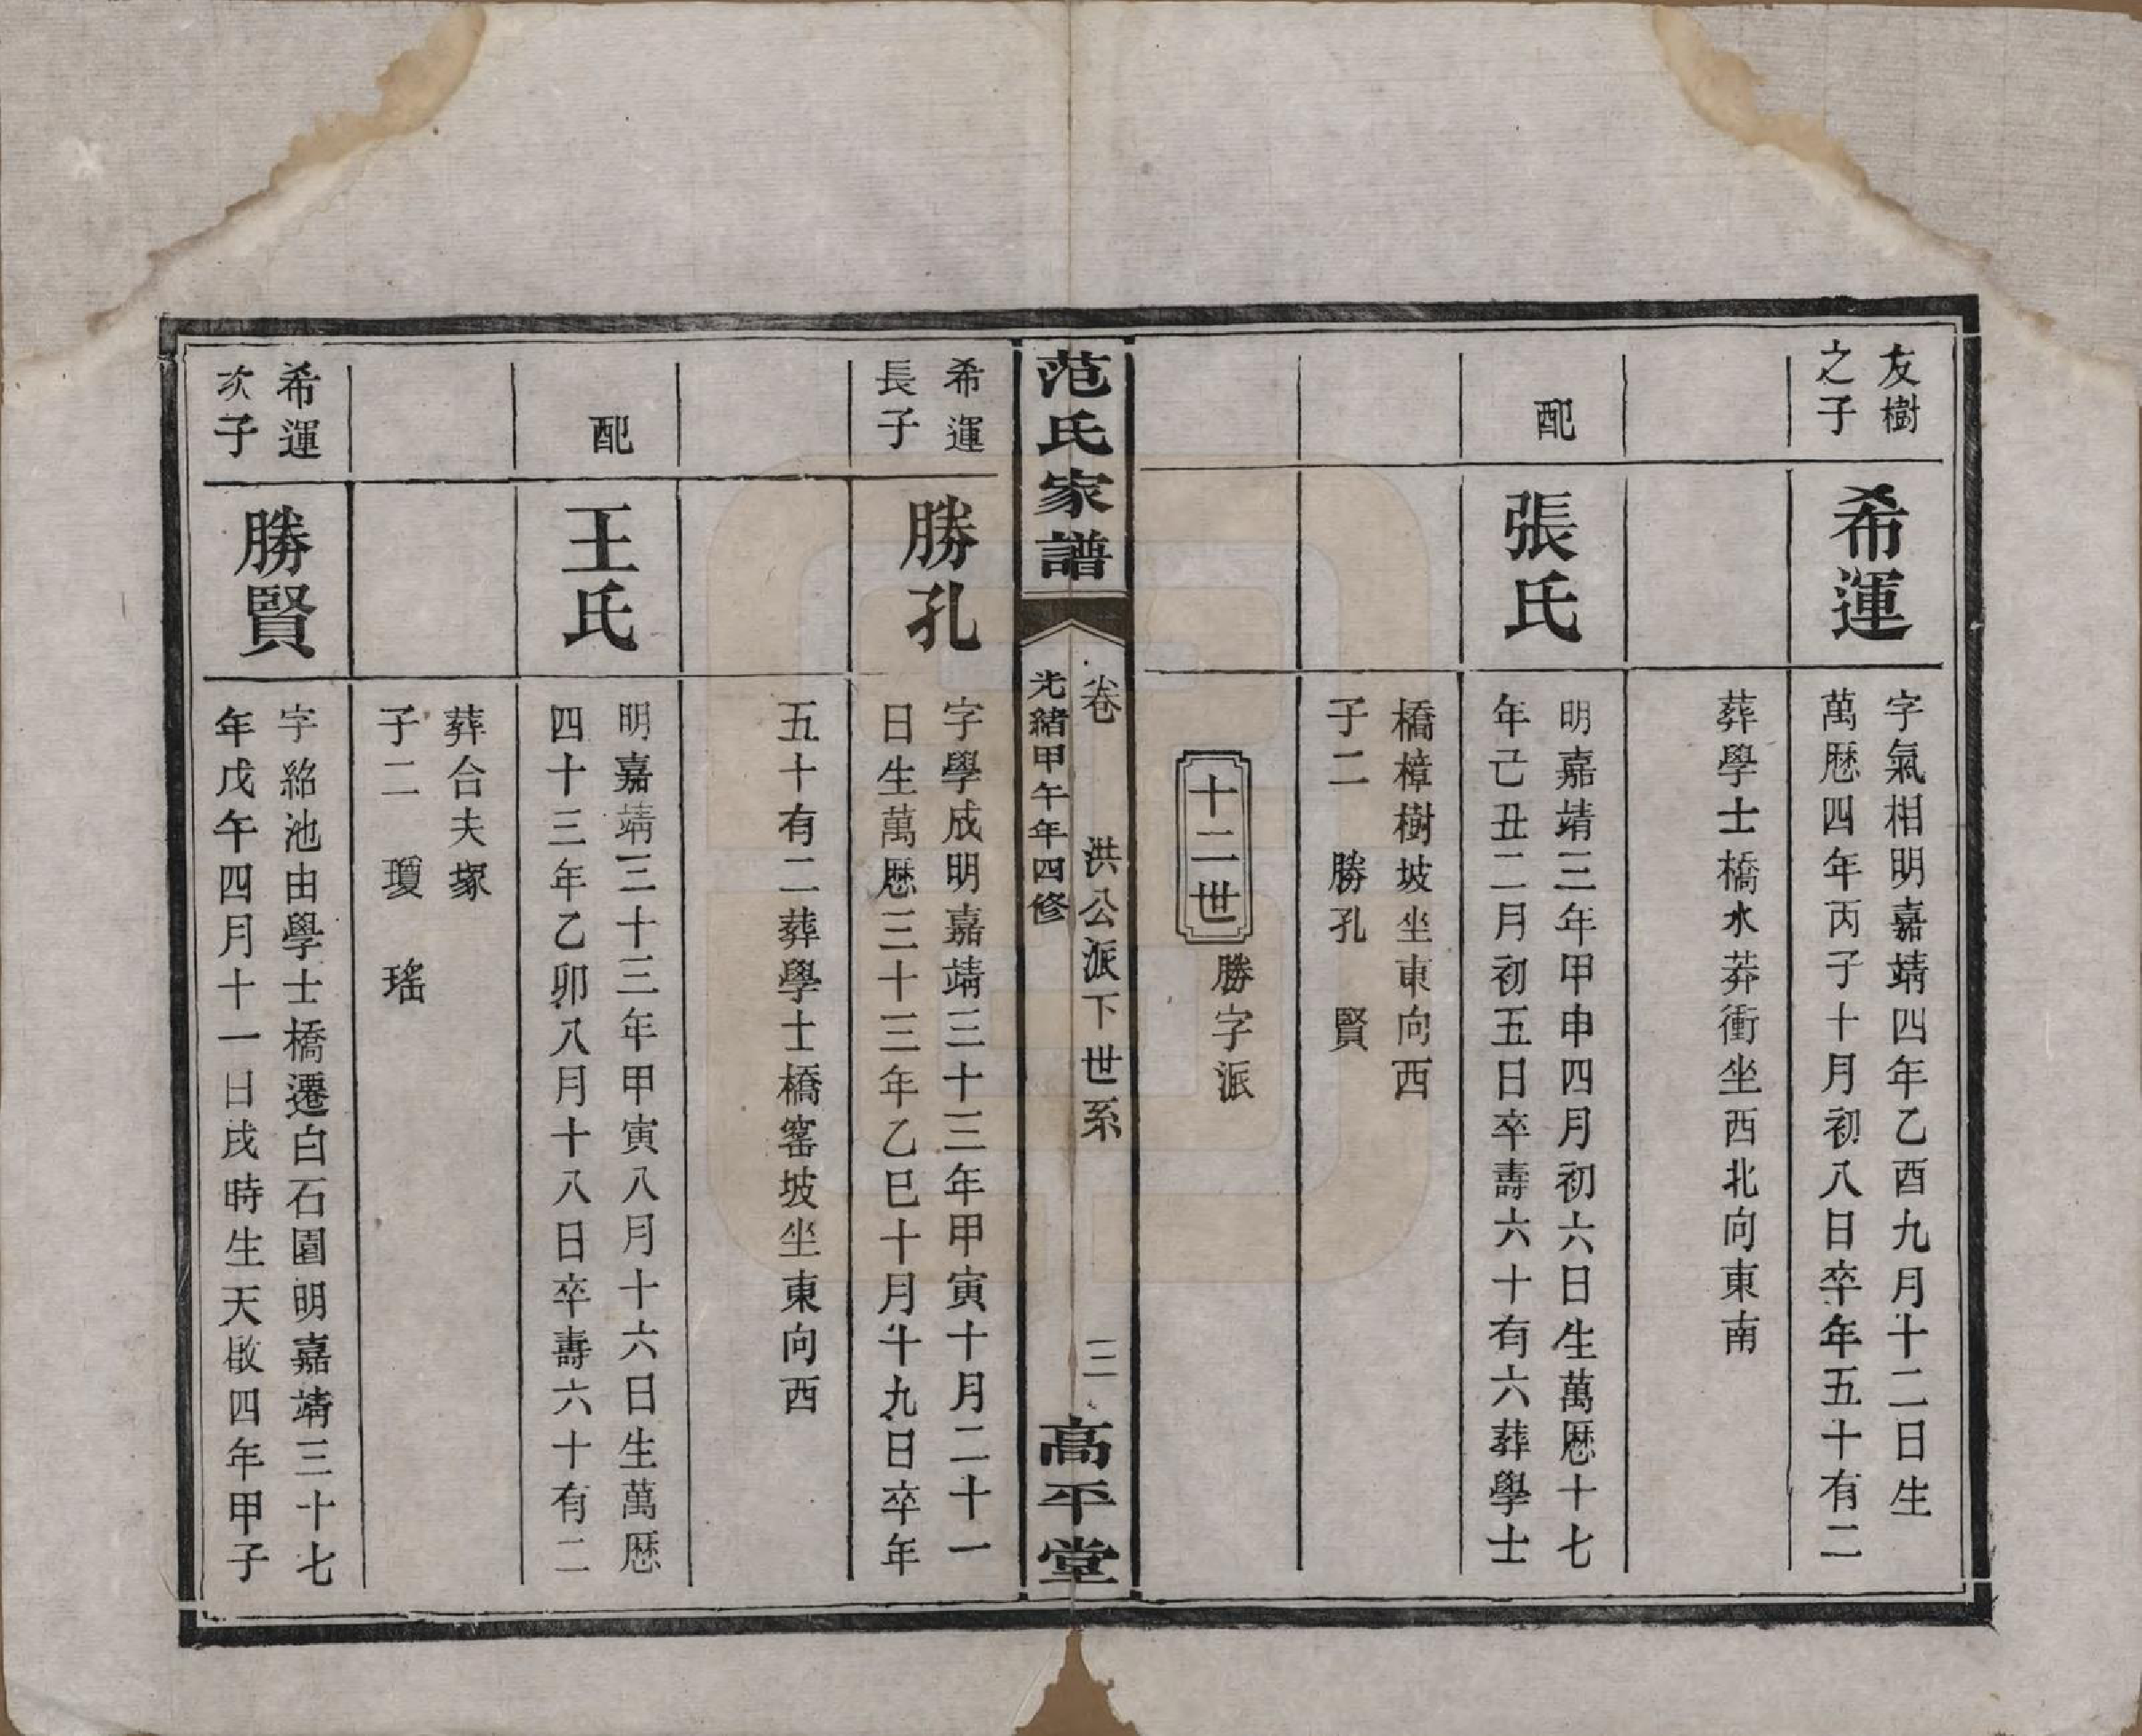 友樹
之子
希運
字氣相明嘉靖四年乙酉九月十二日生
萬厯四年丙子十月初八日卒年五十有二
葬學士橋水莽衝坐西北向東南
配
張氏
明嘉靖三年甲申四月初六日生萬厯十七
年己丑二月初五日卒壽六十有六葬學士
橋樟樹坡坐東向西
子二 勝孔 賢
十二世 勝字派
范氏家譜
卷 洪公派下世系 三
光緒甲午年四修
高平堂
希運
長子
勝孔
字學成明嘉靖三十三年甲寅十月二十一
日生萬厯三十三年乙巳十月十九日卒年
五十有二葬學士橋窰坡坐東向西
配
王氏
明嘉靖三十三年甲寅八月十六日生萬厯
四十三年乙卯八月十八日卒壽六十有二
葬合夫塚
子二 瓊 瑤
希運
次子
勝賢
字紹池由學士橋遷白石園明嘉靖三十七
年戊午四月十一日戌時生天啟四年甲子